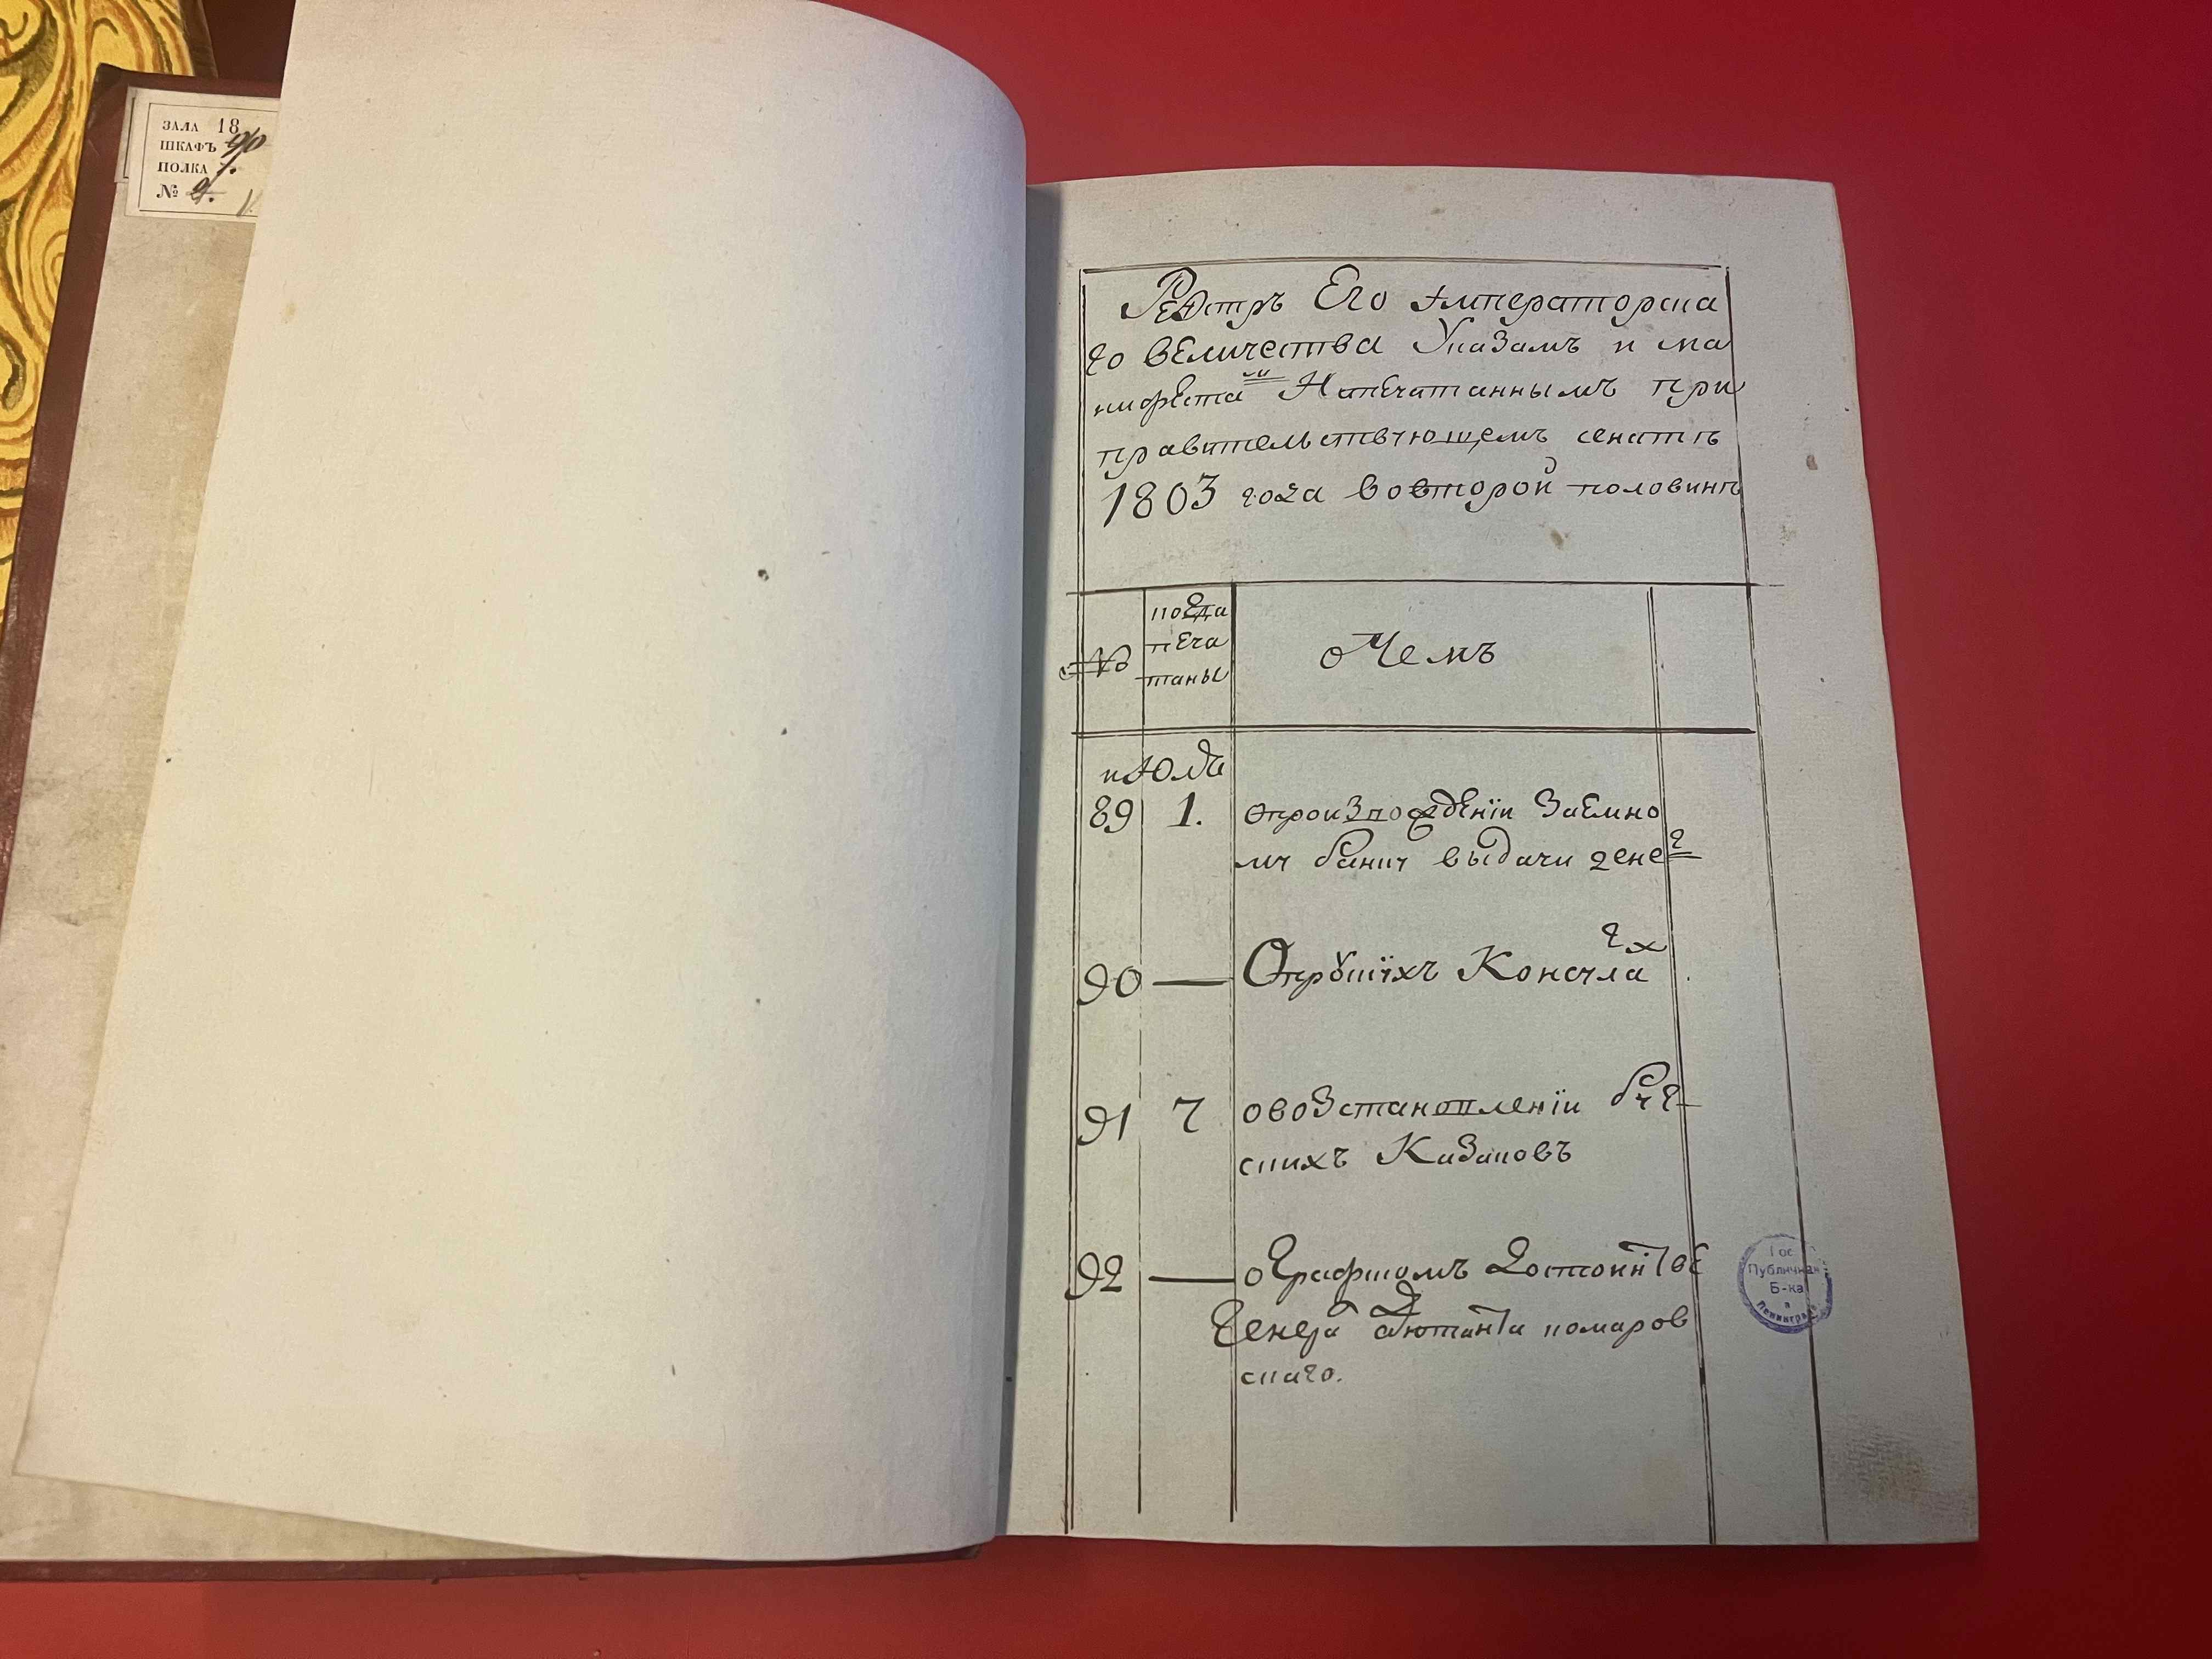 ЗАЛА 18
ШКАФЪ 90
ПОЛКА 7.
№ 2.
Реэстръ Его Императорска
го величества Указамъ и ма
нифеста ми Напечатаннымъ при
правительствующемъ сенатѣ
1803 года вовторой половинѣ
№
когда
печа
таны
о Чемъ
июля
89 1. опроизпождѣнїи Заемно
му банку выдачи денег
90 — Опрускихъ Консулах
91 7 овозстановленїи буг
скихъ Казаковъ
92 — оГрафскомъ достоинстве
Генера адютанта комаров
скаго.
Гос
Публичная
Б-ка
в
Ленинграде